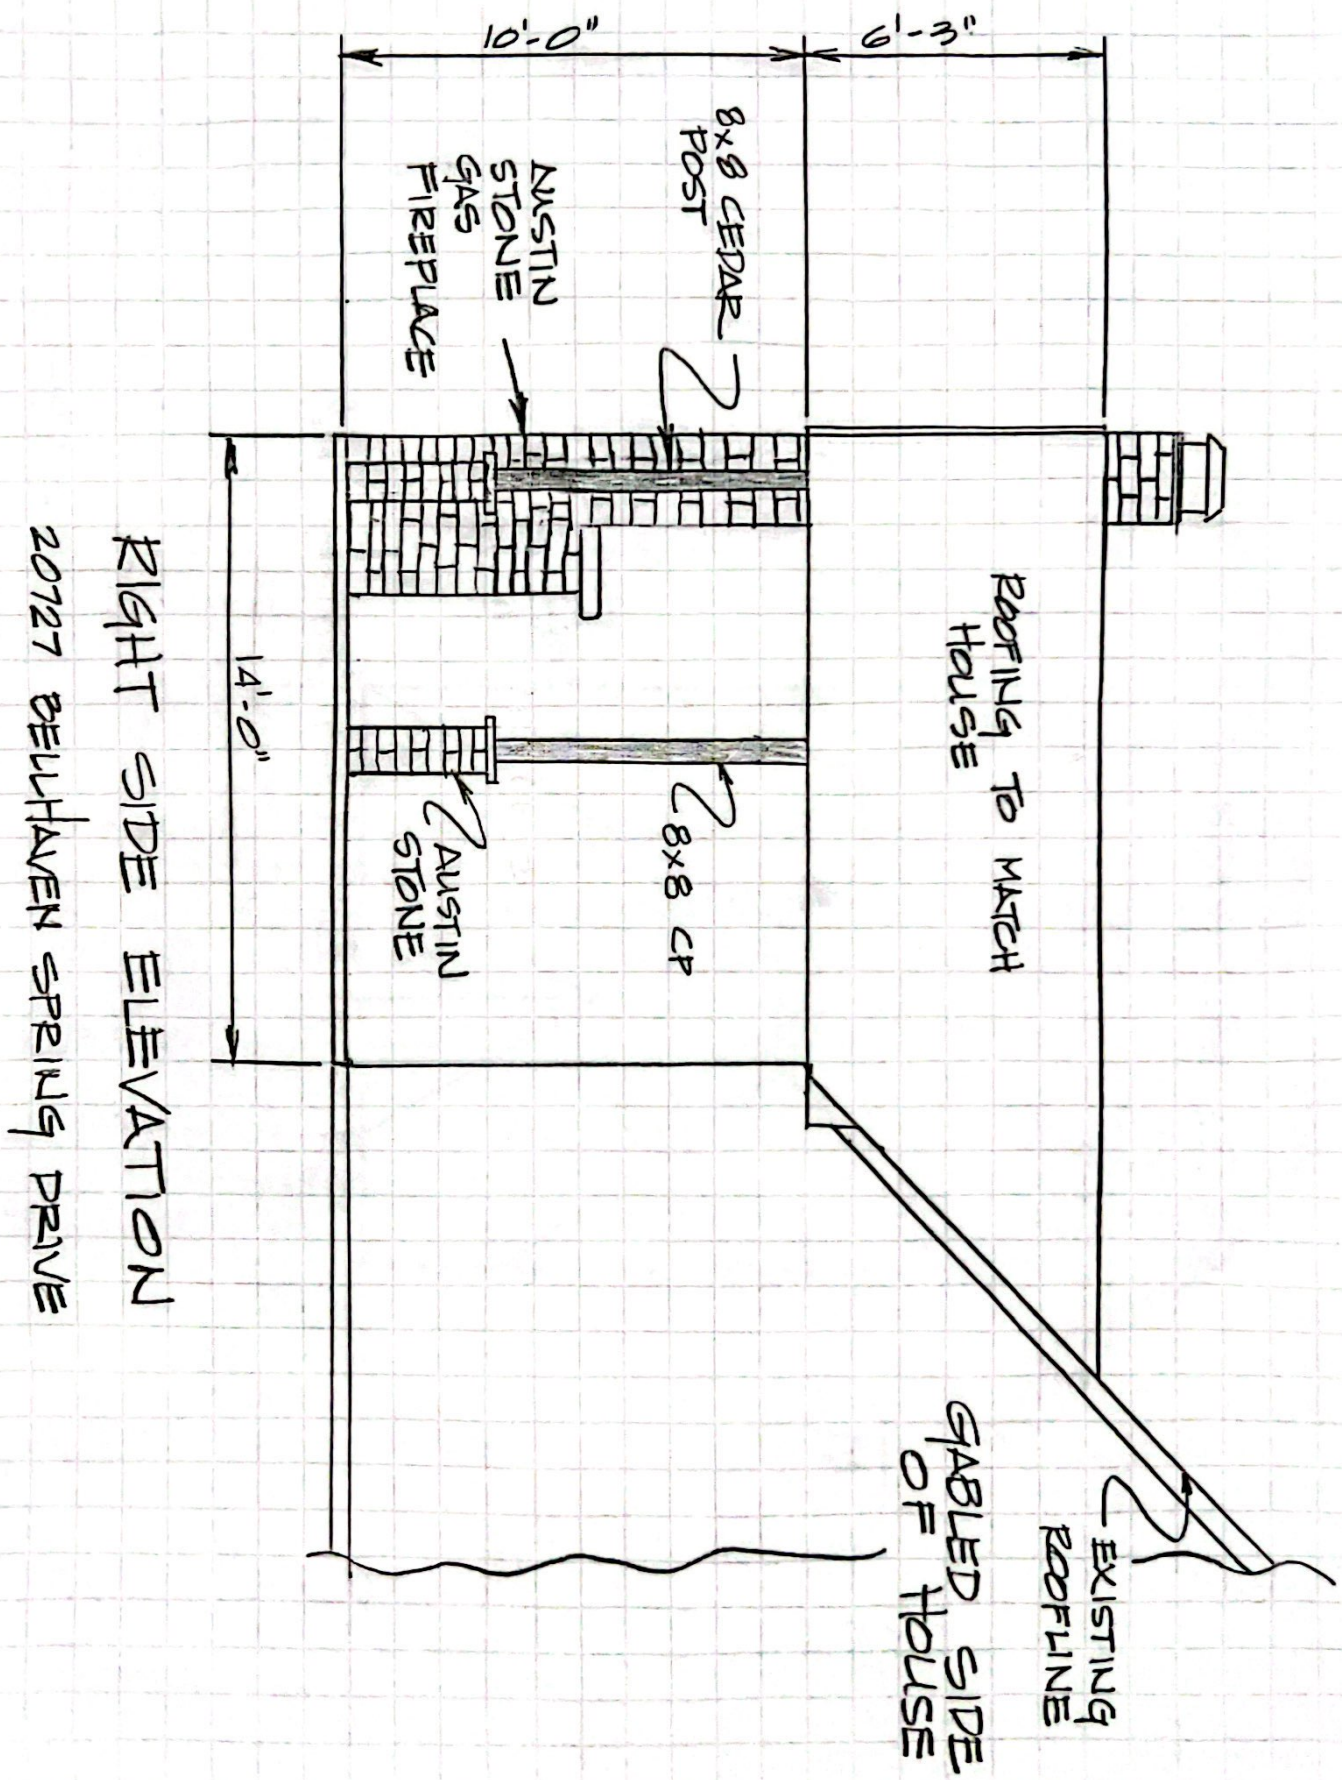 6'-3"
10'-0"
8x8 CEDAR
POST
AUSTIN
STONE
GAS
FIREPLACE
ROOFING TO MATCH
HOUSE
8x8 CP
AUSTIN
STONE
EXISTING
ROOFLINE
GABLED SIDE
OF HOUSE
14'-0"
RIGHT SIDE ELEVATION
20727 BELLHAVEN SPRING DRIVE